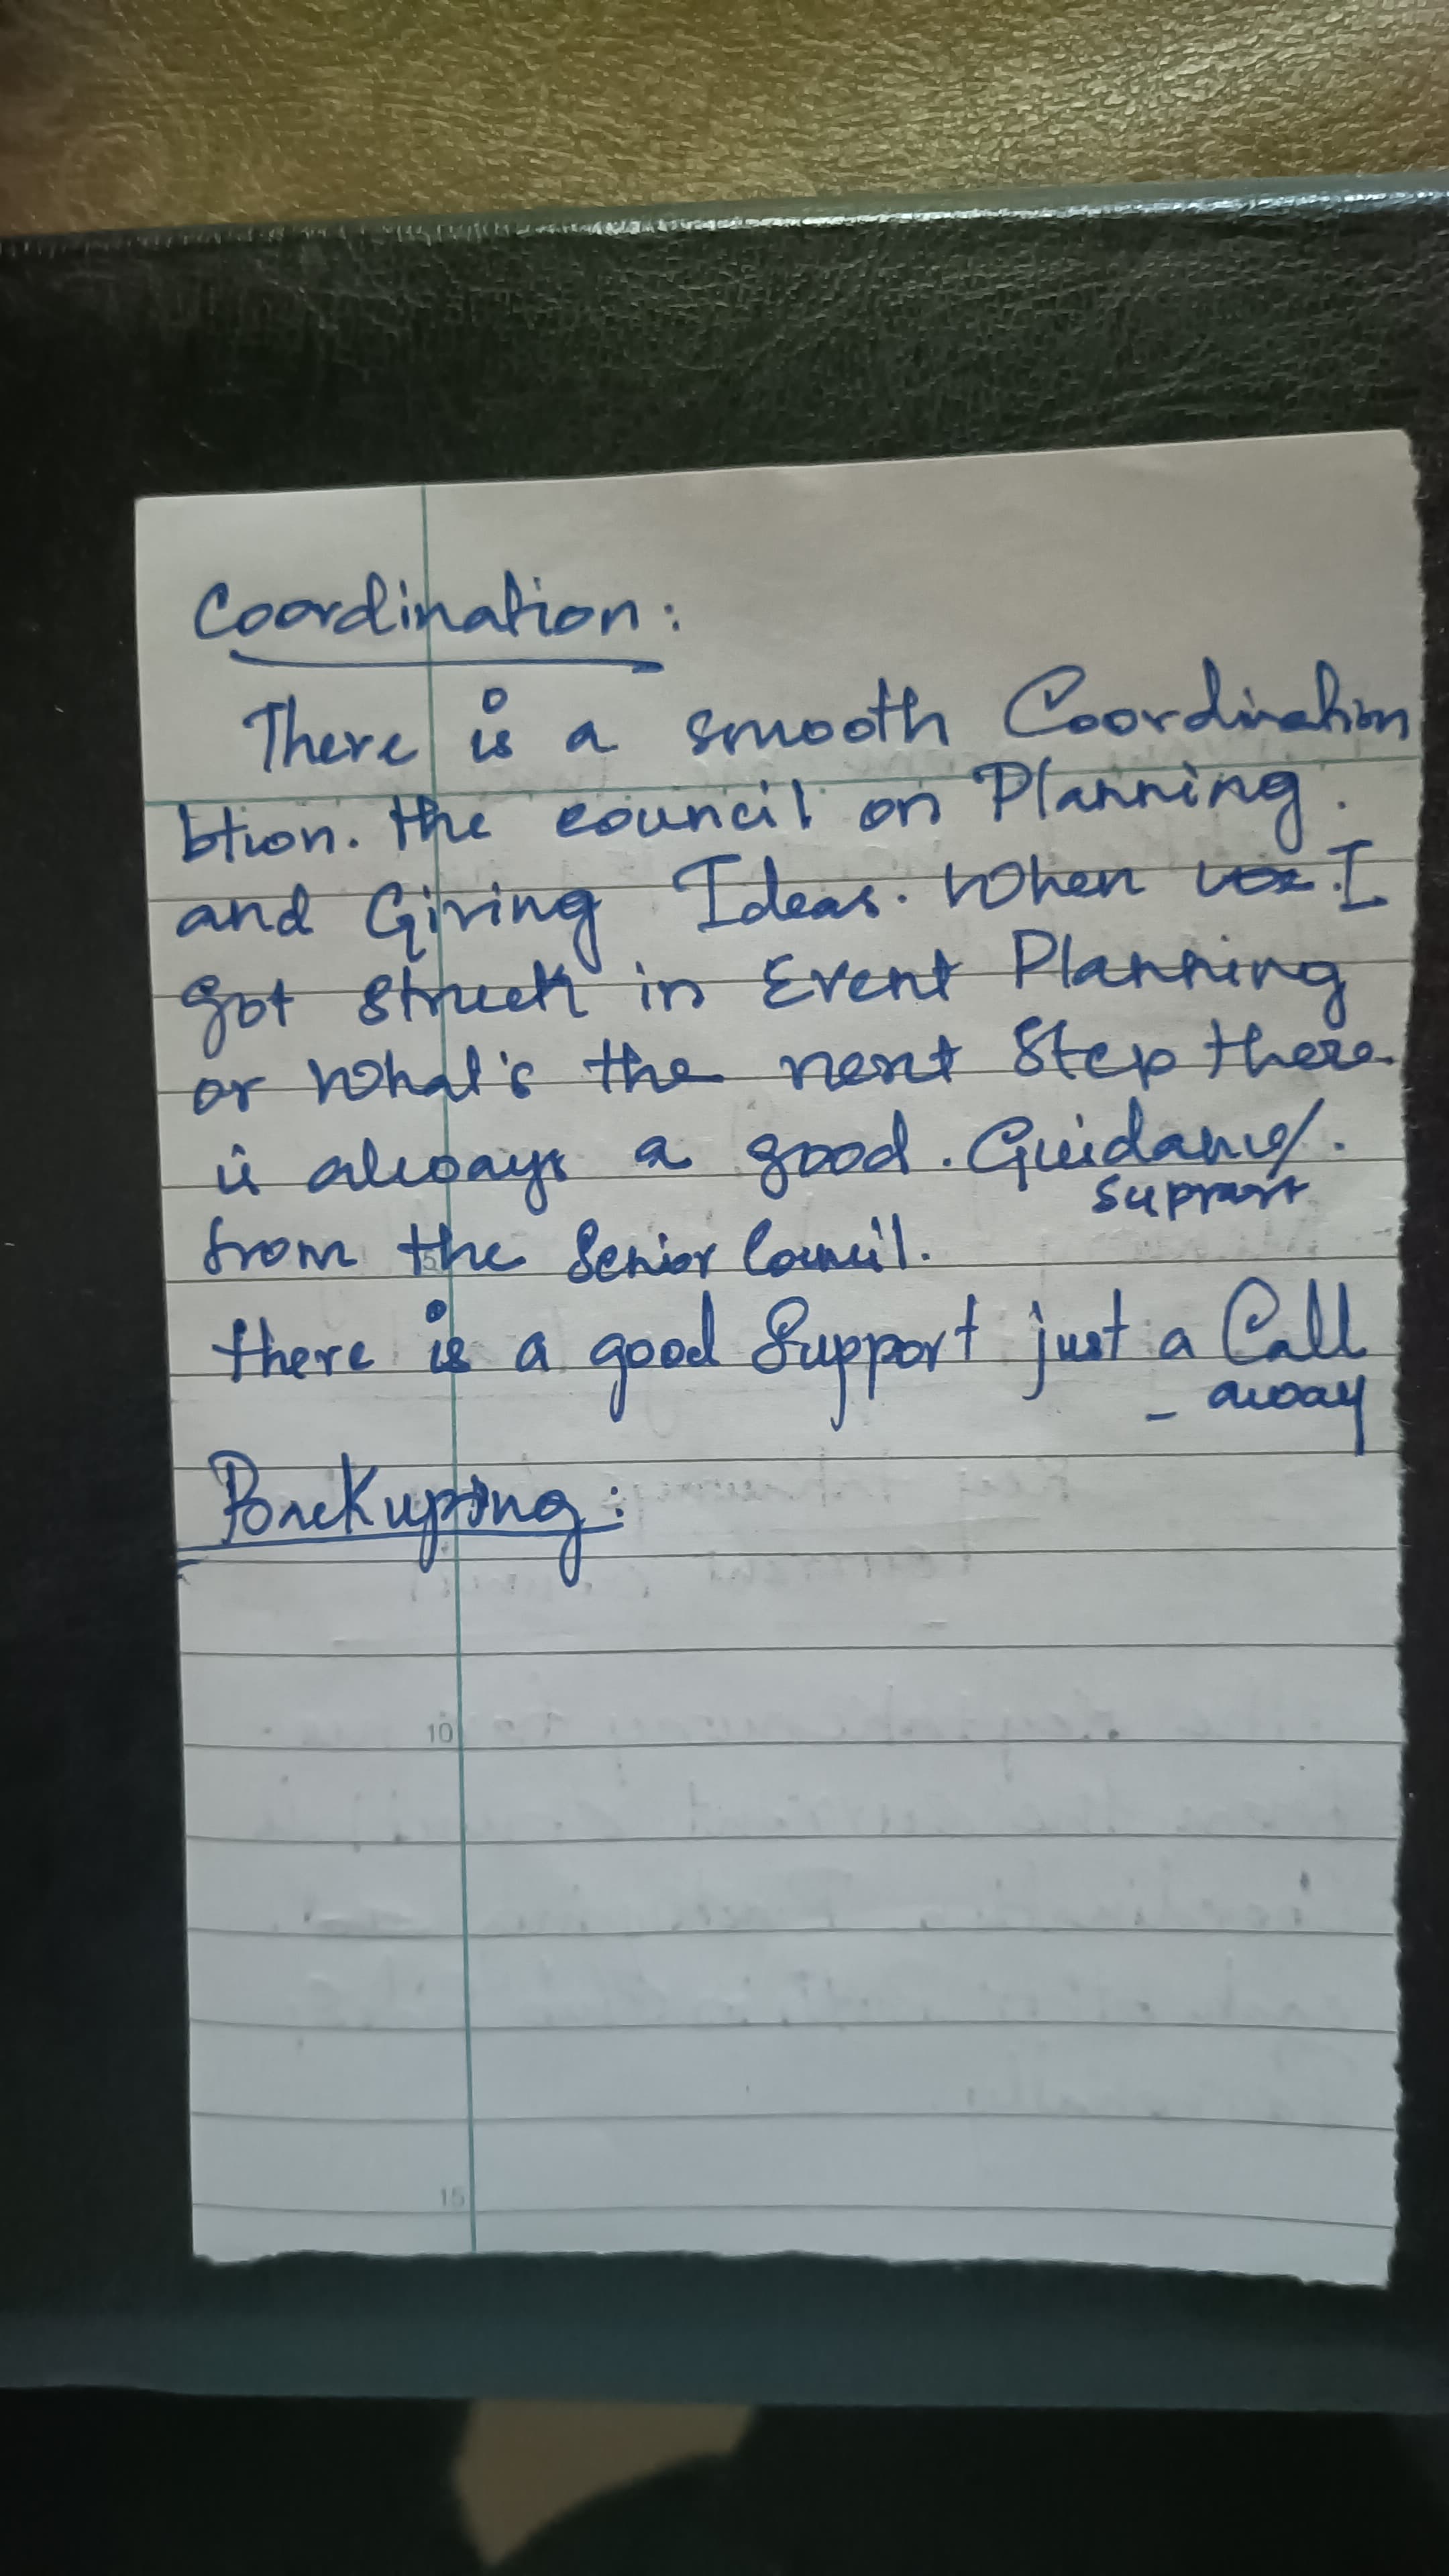 Coordination:
There is a smooth Coordination
btwn. the council on Planning.
and Giving Ideas. When I
got struck in Event Planning
or What's the next Step there
is always a good. Guidance/.
support
from the Senior Council.
there is a good Support just a Call
- away
Backuping:
10
15